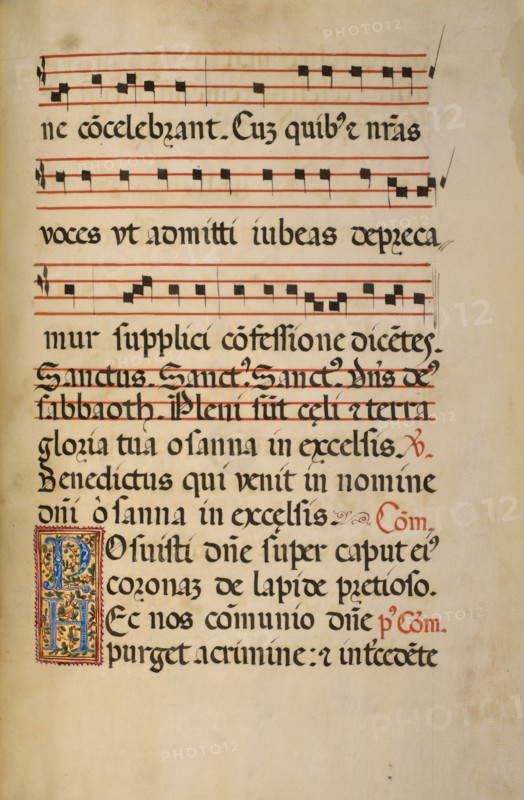 ne cōcelebrant. Cuꝫ quibꝰ ⁊ nr̄as
voces vt admitti iubeas depreca
mur supplici cōfessione dicētes.
Sanctus. Sanctꝰ. Sanctꝰ. Dn̄s deꝰ
sabbaoth. Pleni sūt cęli ⁊ terra
gloria tua osanna in excelsis. ꝶ.
Benedictus qui venit in nomine
dn̄i osanna in excęlsis. Cōm.
POsuisti dn̄e super caput eiꝰ
coronaꝫ de lapide pretioso.
HEc nos cōmunio dn̄e pꝰ Cōm.
purget a crimine: ⁊ int̄cedēte
PHOTO12